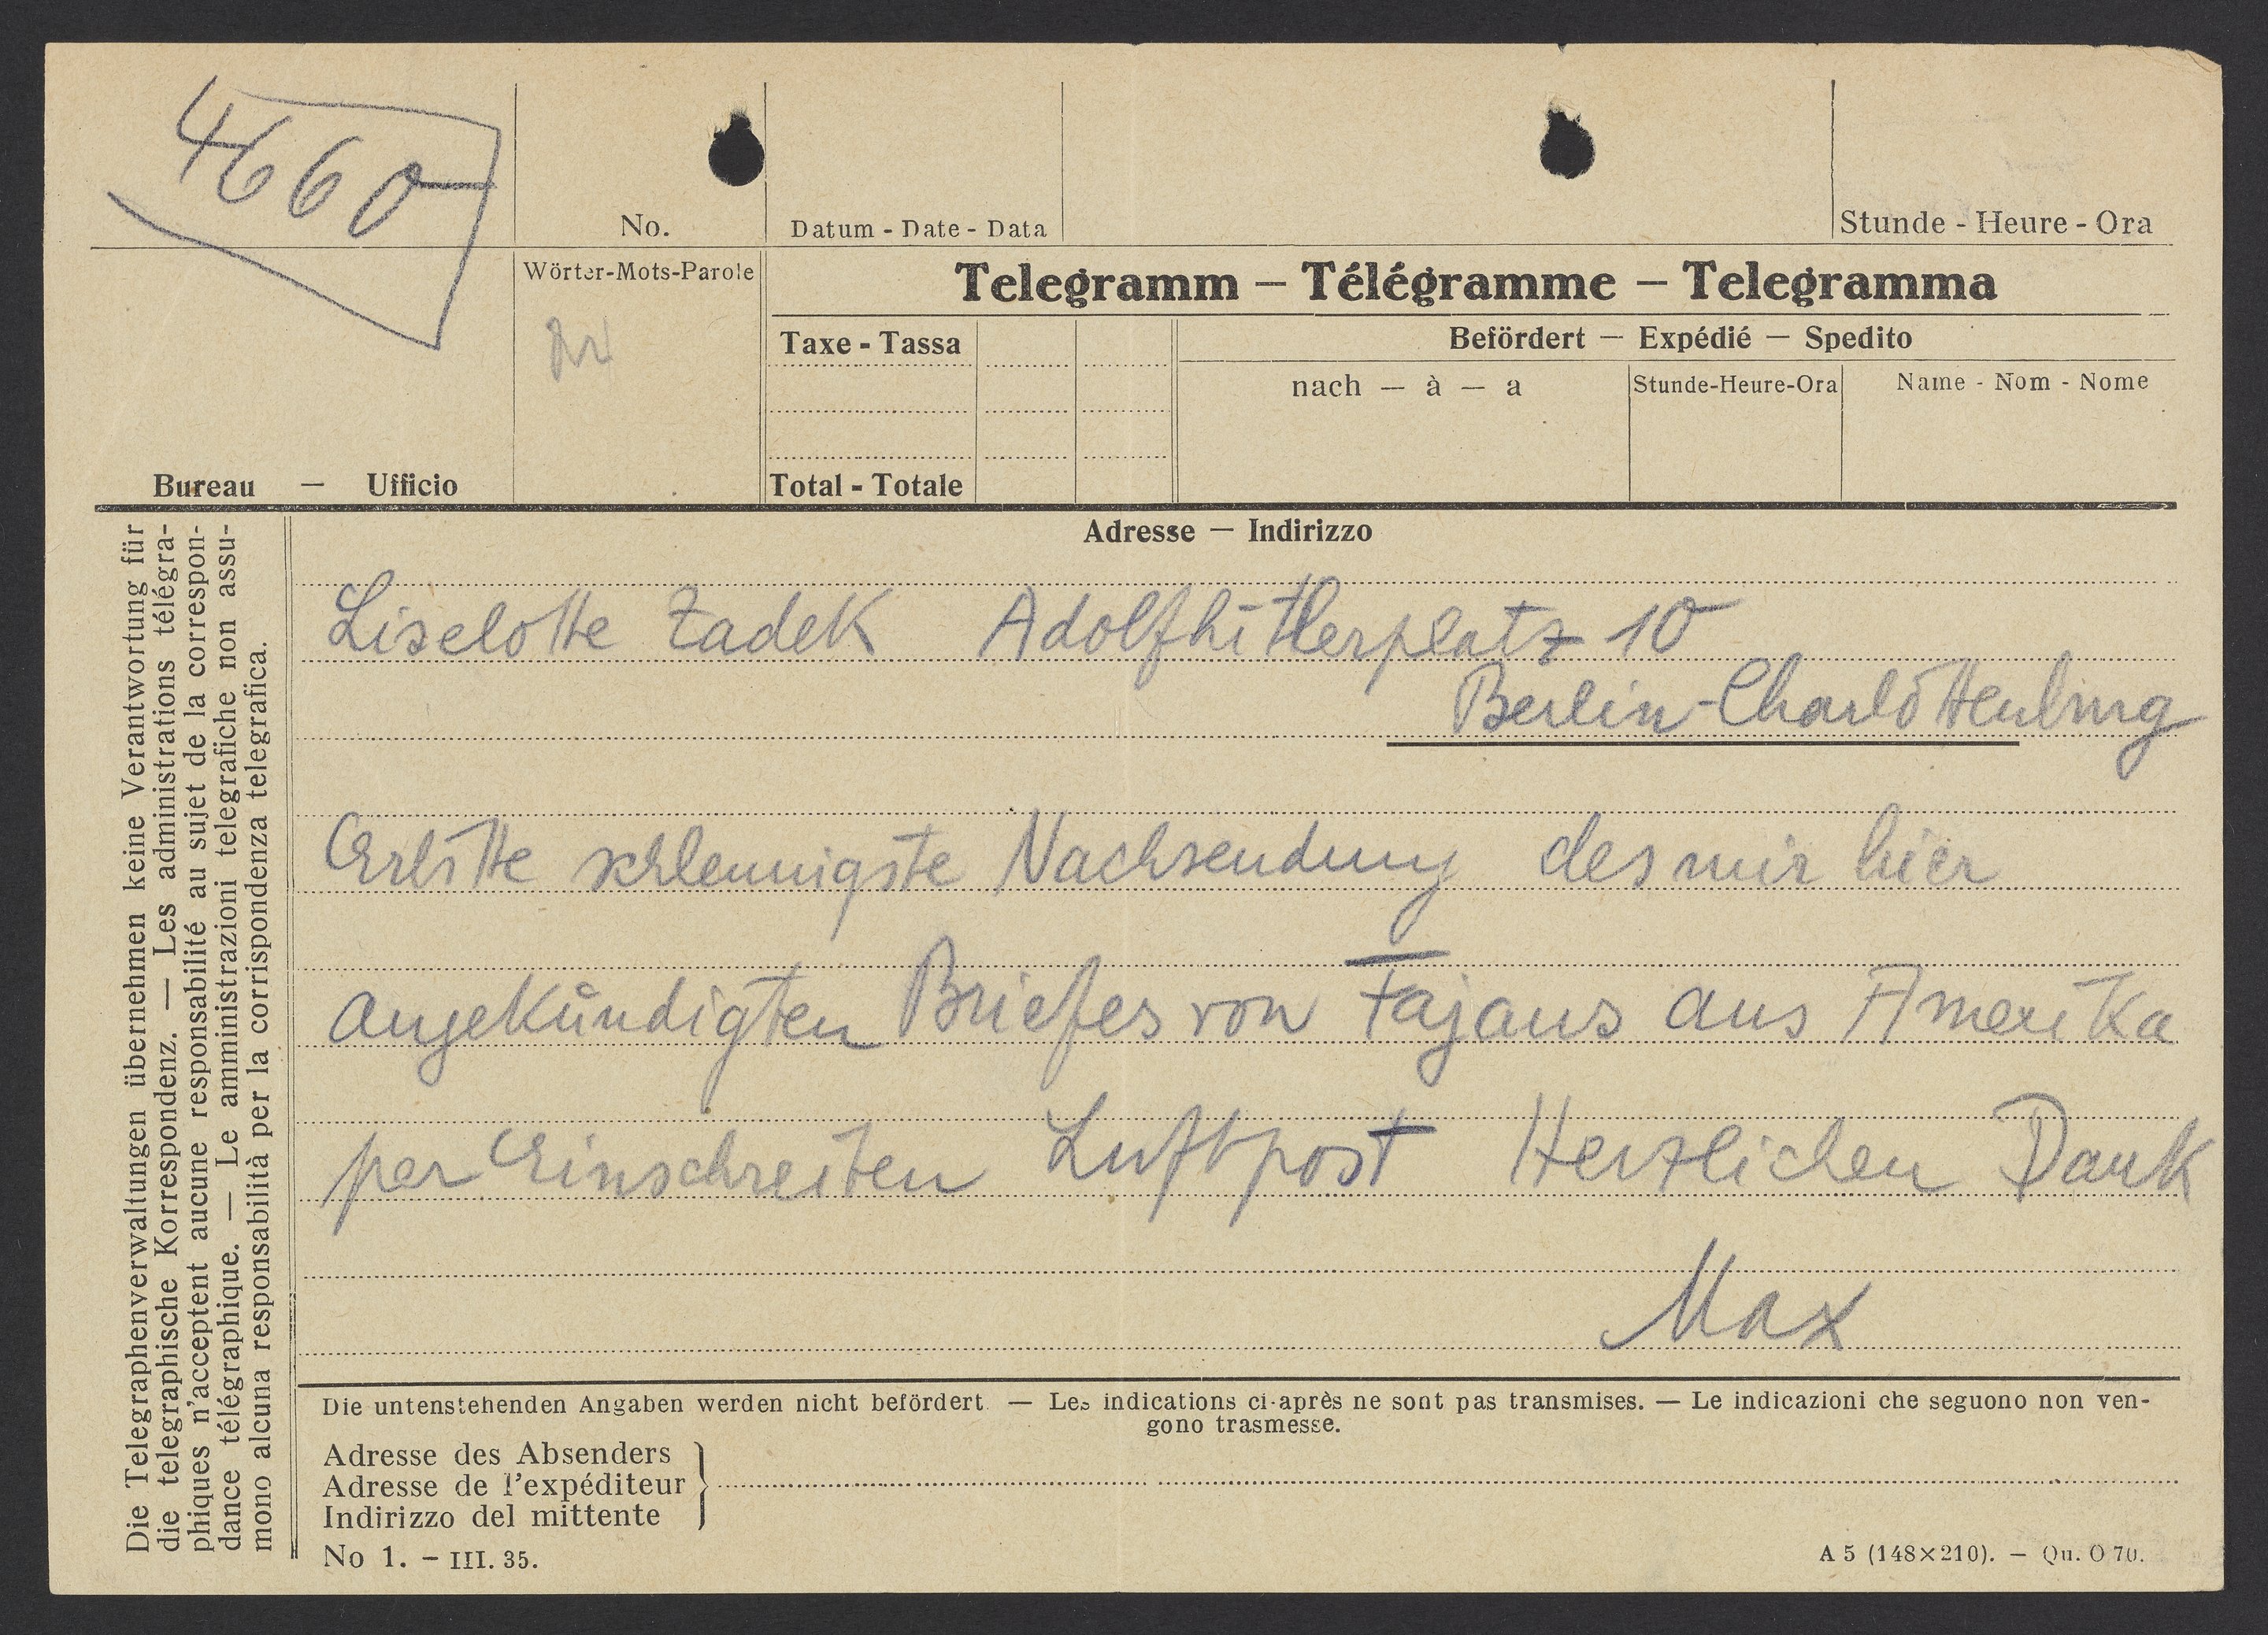 4660
No.
Datum - Date - Data
Stunde - Heure - Ora
Wörter-Mots-Parole
Telegramm — Télégramme — Telegramma
Taxe - Tassa
Befördert — Expédié — Spedito
nach — à — a
Stunde-Heure-Ora
Name - Nom - Nome
Bureau — Ufficio
Total - Totale
Die Telegraphenverwaltungen übernehmen keine Verantwortung für
die telegraphische Korrespondenz. — Les administrations télégra-
phiques n'acceptent aucune responsabilité au sujet de la correspon-
dance télégraphique. — Le amministrazioni telegrafiche non assu-
mono alcuna responsabilità per la corrispondenza telegrafica.
Adresse — Indirizzo
Liselotte Zadek Adolfhitlerplatz 10
Berlin-Charlottenburg
Erbitte schleunigste Nachsendung des mir hier
angekündigten Briefes von Fajans aus Amerika
per Einschreiben Luftpost Herzlichen Dank
Max
Die untenstehenden Angaben werden nicht befördert. — Les indications ci-après ne sont pas transmises. — Le indicazioni che seguono non ven-
gono trasmesse.
Adresse des Absenders
Adresse de l'expéditeur
Indirizzo del mittente
No 1. – III. 35.
A 5 (148×210). — Qu. O 70.